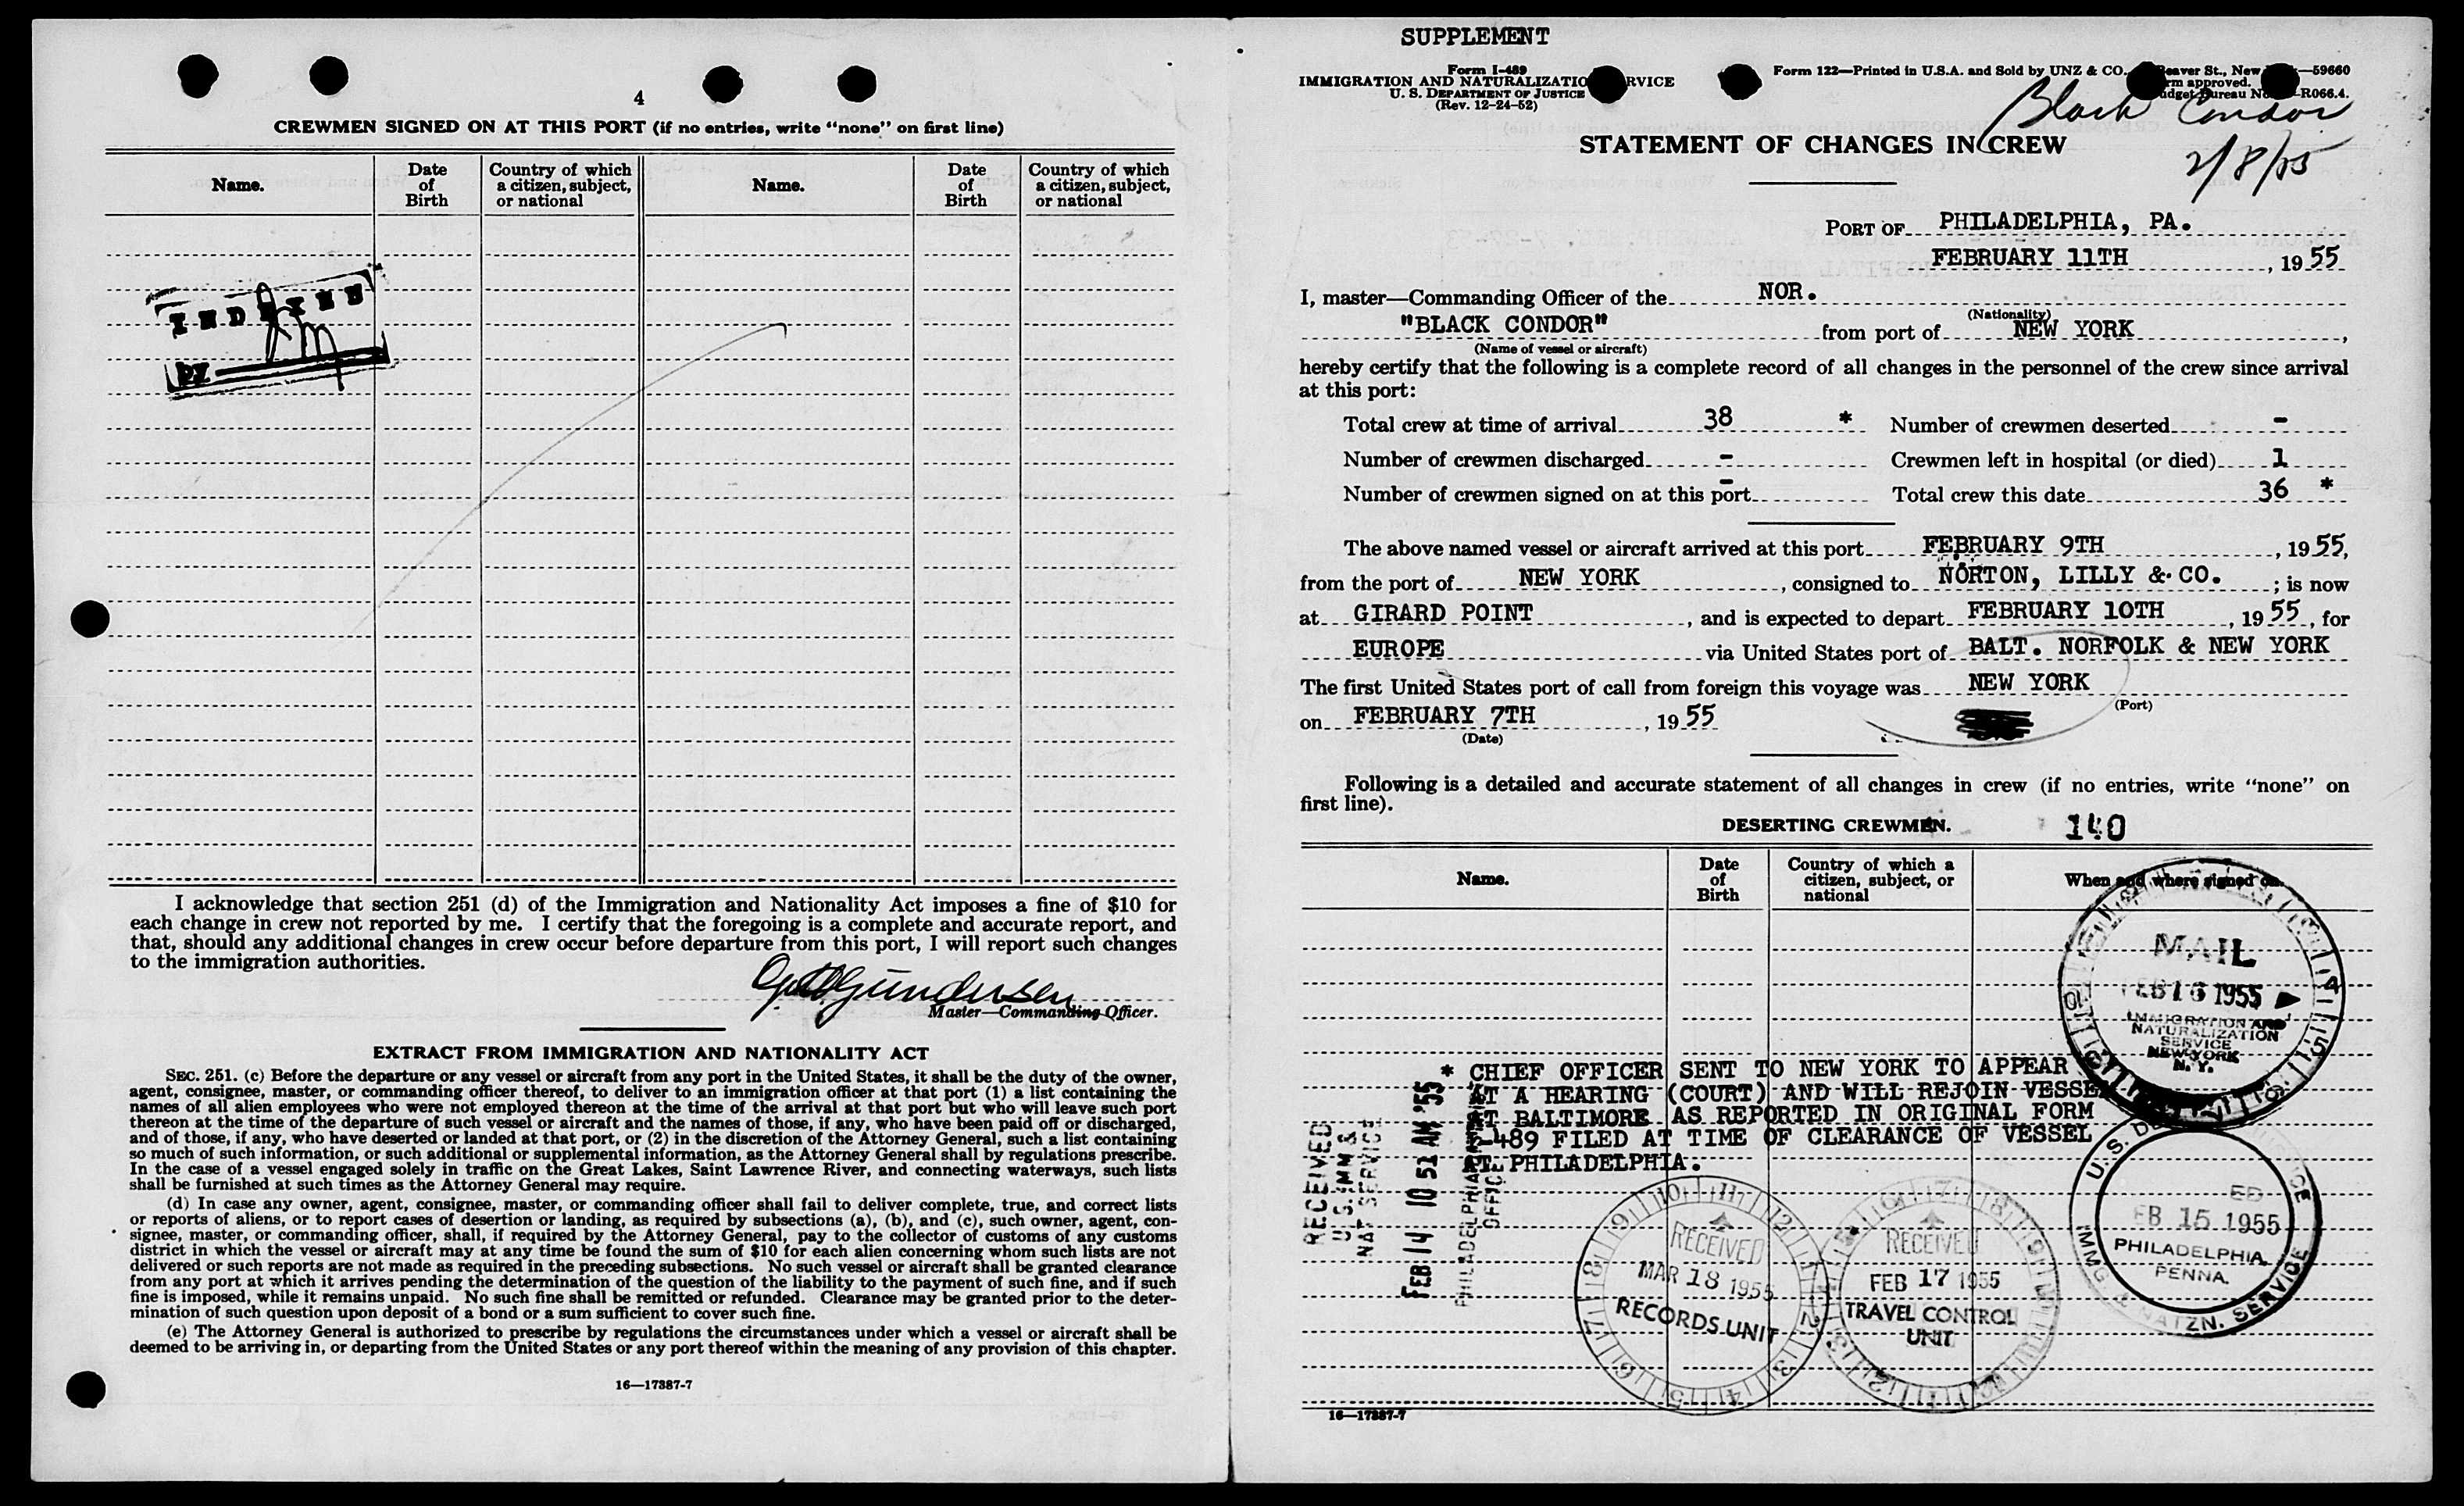 4
CREWMEN SIGNED ON AT THIS PORT (if no entries, write “none” on first line)
Name.
Date of Birth
Country of which a citizen, subject, or national
Name.
Date of Birth
Country of which a citizen, subject, or national
INDEXED
BY
I acknowledge that section 251 (d) of the Immigration and Nationality Act imposes a fine of $10 for
each change in crew not reported by me. I certify that the foregoing is a complete and accurate report, and
that, should any additional changes in crew occur before departure from this port, I will report such changes
to the immigration authorities.
Gundersen
Master—Commanding Officer.
EXTRACT FROM IMMIGRATION AND NATIONALITY ACT
SEC. 251. (c) Before the departure or any vessel or aircraft from any port in the United States, it shall be the duty of the owner,
agent, consignee, master, or commanding officer thereof, to deliver to an immigration officer at that port (1) a list containing the
names of all alien employees who were not employed thereon at the time of the arrival at that port but who will leave such port
thereon at the time of the departure of such vessel or aircraft and the names of those, if any, who have been paid off or discharged,
and of those, if any, who have deserted or landed at that port, or (2) in the discretion of the Attorney General, such a list containing
so much of such information, or such additional or supplemental information, as the Attorney General shall by regulations prescribe.
In the case of a vessel engaged solely in traffic on the Great Lakes, Saint Lawrence River, and connecting waterways, such lists
shall be furnished at such times as the Attorney General may require.
(d) In case any owner, agent, consignee, master, or commanding officer shall fail to deliver complete, true, and correct lists
or reports of aliens, or to report cases of desertion or landing, as required by subsections (a), (b), and (c), such owner, agent, con-
signee, master, or commanding officer, shall, if required by the Attorney General, pay to the collector of customs of any customs
district in which the vessel or aircraft may at any time be found the sum of $10 for each alien concerning whom such lists are not
delivered or such reports are not made as required in the preceding subsections. No such vessel or aircraft shall be granted clearance
from any port at which it arrives pending the determination of the question of the liability to the payment of such fine, and if such
fine is imposed, while it remains unpaid. No such fine shall be remitted or refunded. Clearance may be granted prior to the deter-
mination of such question upon deposit of a bond or a sum sufficient to cover such fine.
(e) The Attorney General is authorized to prescribe by regulations the circumstances under which a vessel or aircraft shall be
deemed to be arriving in, or departing from the United States or any port thereof within the meaning of any provision of this chapter.
16—17387-7
SUPPLEMENT
Form I-489
IMMIGRATION AND NATURALIZATIO RVICE
U. S. DEPARTMENT OF JUSTICE
(Rev. 12-24-52)
Form 122—Printed in U.S.A. and Sold by UNZ & CO. eaver St., New —59660
rm approved.
udget Bureau No. —R066.4.
Black Condor
2/8/55
STATEMENT OF CHANGES IN CREW
PORT OF PHILADELPHIA, PA.
FEBRUARY 11TH, 1955
I, master—Commanding Officer of the NOR.
(Nationality)
"BLACK CONDOR" from port of NEW YORK,
(Name of vessel or aircraft)
hereby certify that the following is a complete record of all changes in the personnel of the crew since arrival
at this port:
Total crew at time of arrival 38 * Number of crewmen deserted -
Number of crewmen discharged - Crewmen left in hospital (or died) 1
Number of crewmen signed on at this port - Total crew this date 36 *
The above named vessel or aircraft arrived at this port FEBRUARY 9TH, 1955,
from the port of NEW YORK, consigned to NORTON, LILLY & CO.; is now
at GIRARD POINT, and is expected to depart FEBRUARY 10TH, 1955, for
EUROPE via United States port of BALT. NORFOLK & NEW YORK
The first United States port of call from foreign this voyage was NEW YORK
(Port)
on FEBRUARY 7TH, 1955
(Date)
Following is a detailed and accurate statement of all changes in crew (if no entries, write “none” on
first line).
DESERTING CREWMEN. 140
Name.
Date of Birth
Country of which a citizen, subject, or national
When and where signed on
MAIL
FEB 16 1955
IMMIGRATION AND
NATURALIZATION
SERVICE
NEW YORK
N. Y.
* CHIEF OFFICER SENT TO NEW YORK TO APPEAR
AT A HEARING (COURT) AND WILL REJOIN VESSEL
AT BALTIMORE AS REPORTED IN ORIGINAL FORM
I-489 FILED AT TIME OF CLEARANCE OF VESSEL
AT PHILADELPHIA.
RECEIVED
U.S. IMM &
NAT SERVICE
FEB 14 10 51 AM '55
PHILADELPHIA
OFFICE
RECEIVED
MAR 18 1955
RECORDS UNIT
RECEIVED
FEB 17 1955
TRAVEL CONTROL
UNIT
U. S.
ED
EB 15 1955
PHILADELPHIA
PENNA.
IMMG & NATZN. SERVICE
16—17387-7